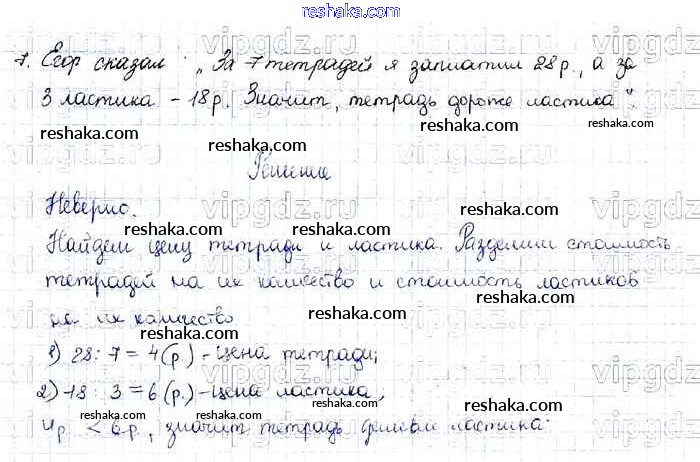 reshaka.com
7. Егор сказал: „За 7 тетрадей я заплатил 28 р., а за
3 ластика - 18 р. Значит, тетрадь дороже ластика".
reshaka.com reshaka.com reshaka.com
Решение
vipgdz.ru vipgdz.ru vipgdz.ru
Неверно.
reshaka.com reshaka.com reshaka.com
Найдем цену тетради и ластика. Разделим стоимость
тетрадей на их количество и стоимость ластиков
на их количество
reshaka.com reshaka.com reshaka.com
1) 28 : 7 = 4 (р.) - цена тетради;
2) 18 : 3 = 6 (р.) - цена ластика,
reshaka.com reshaka.com reshaka.com reshaka.com
4 р. < 6 р., значит тетрадь дешевле ластика.
reshaka.com